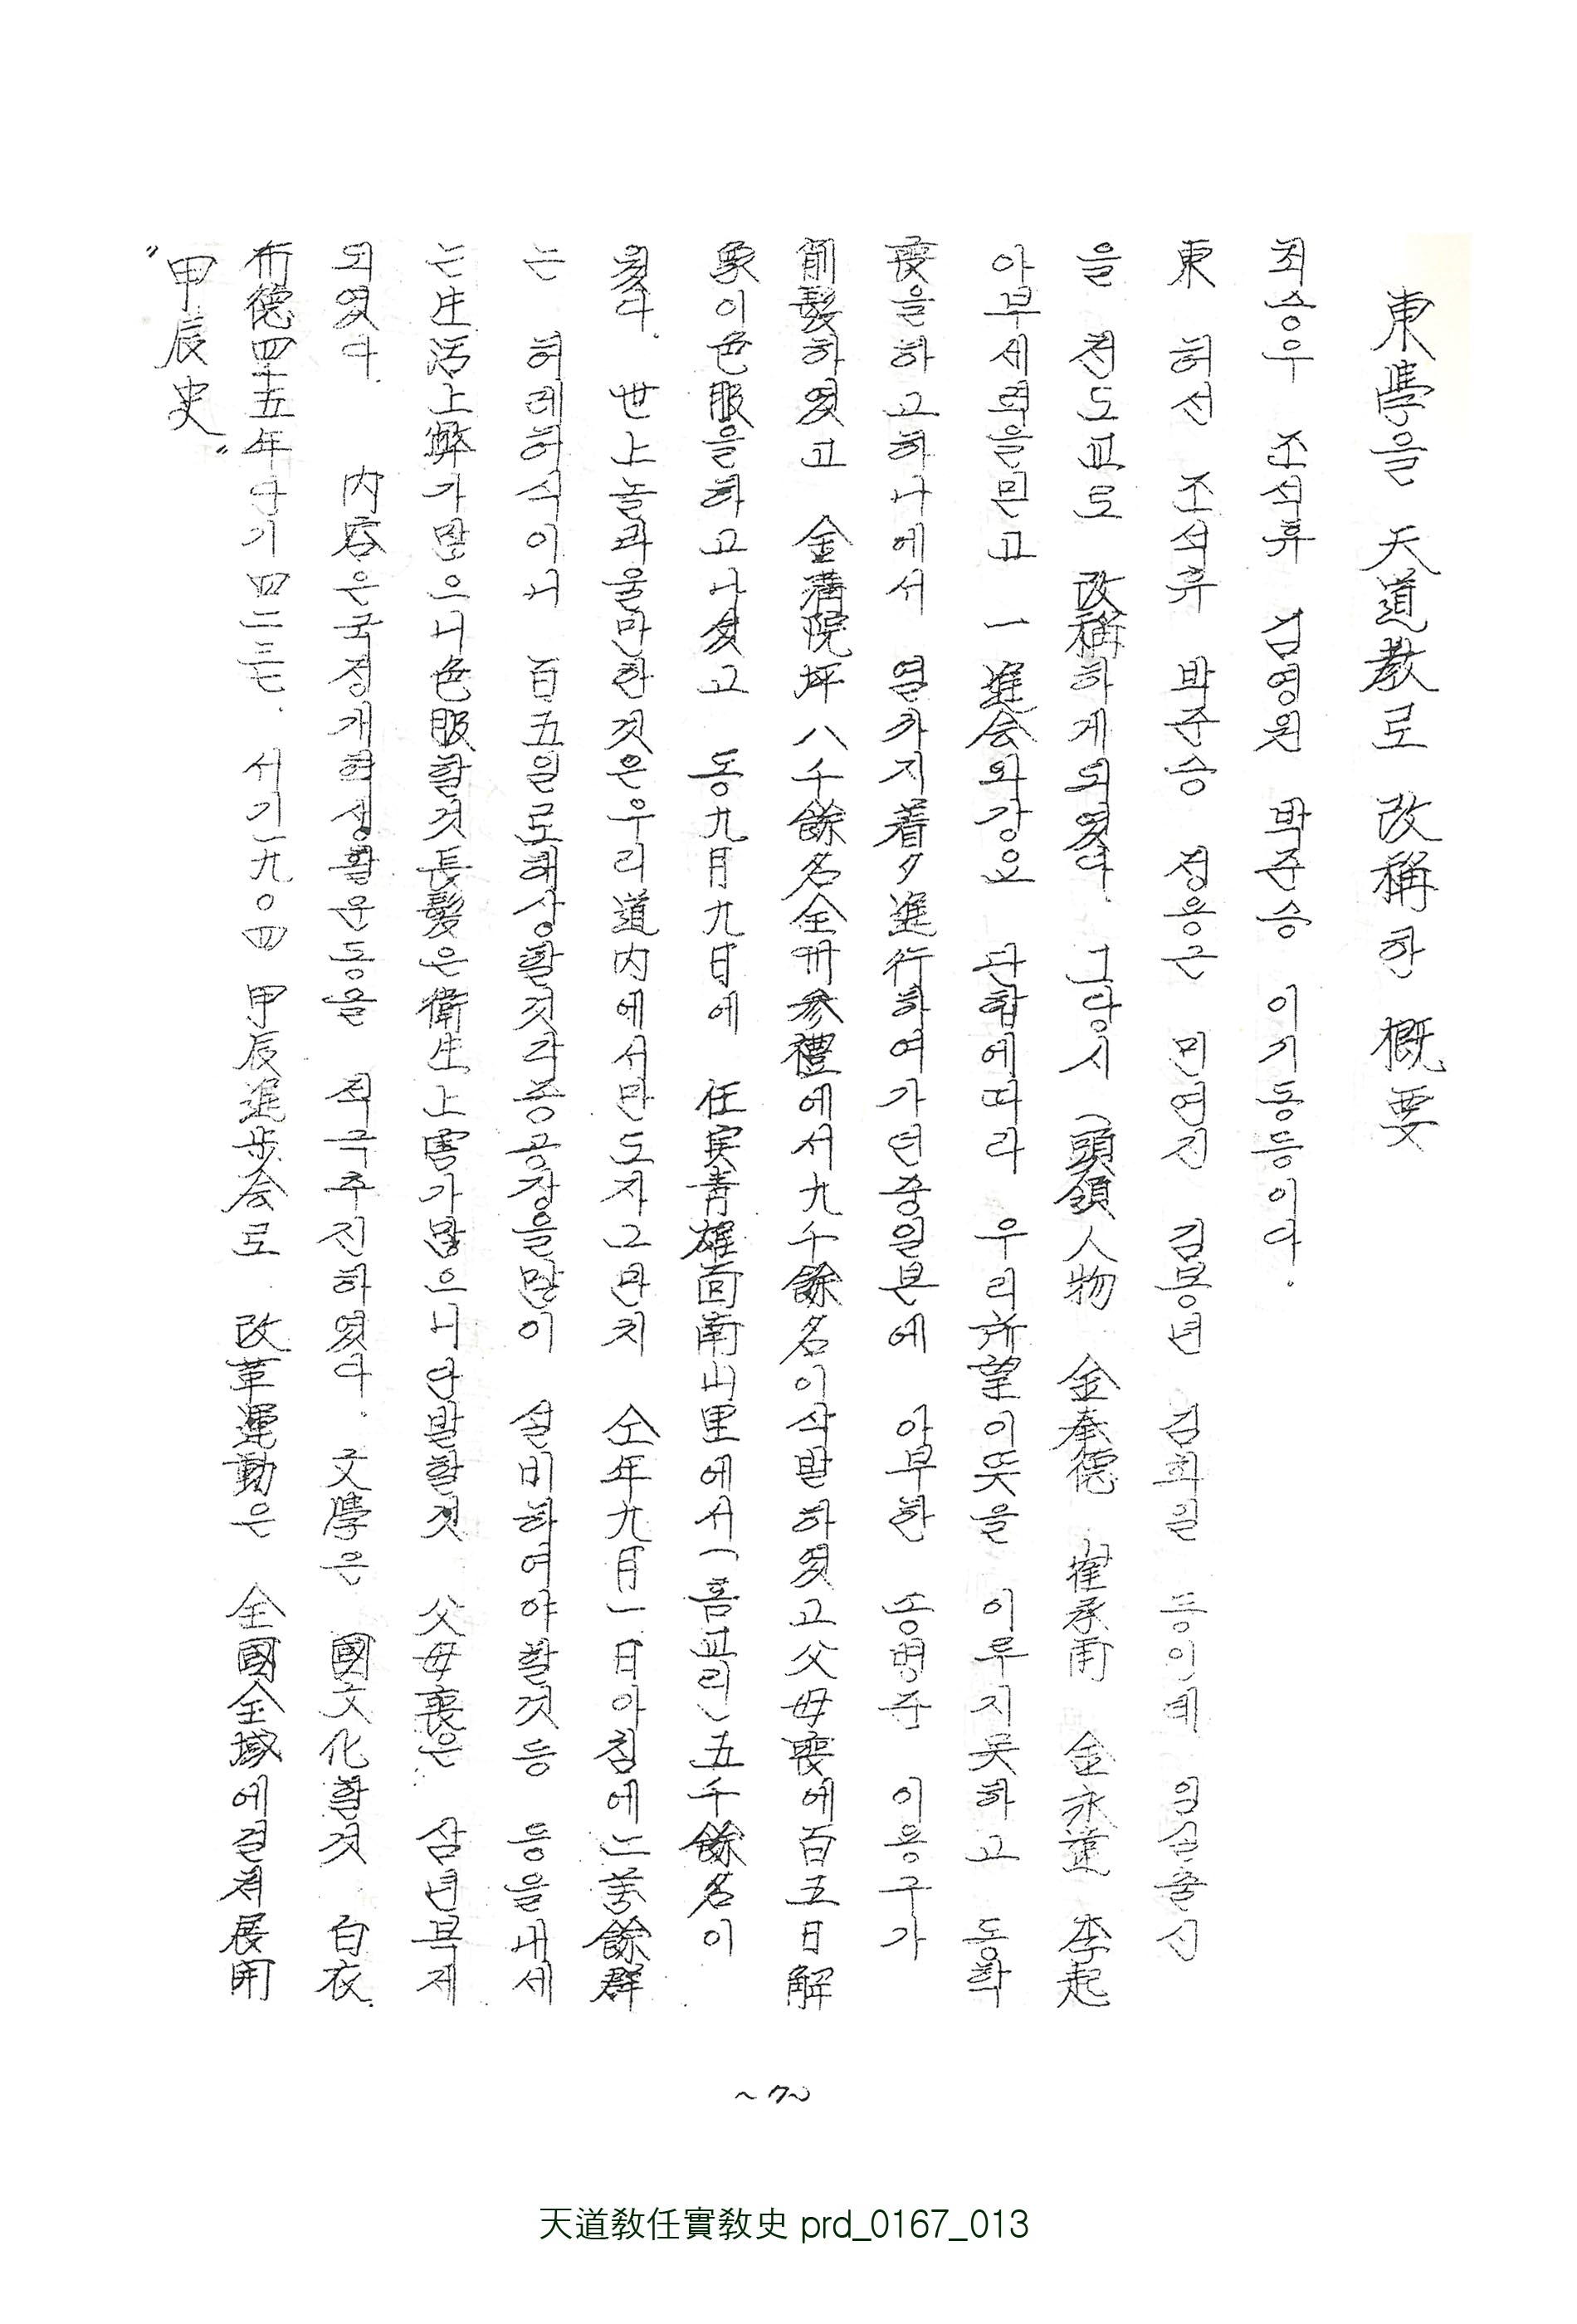 "甲辰史"
布德四十五年 단기四二三七. 서기一九〇四 甲辰進步会로 改革運動은 全國全域에걸쳐展開
되였다. 內容은국정개혁생활운동을 적극추진하였다. 文學은 國文化할것 白衣
는生活上弊가많으니色服할것長髮은衛生上害가많으니단발할것 父母喪은 삼년복제
는 허례허식이서 百五일로해상할것각종공장을많이 설비하여야할것등 등을내세
웠다. 世上놀라울만한것은우리道內에서만도자그만치 仝年九月一日아침에二萬餘群
衆이色服을하고나섰고 동九月九日에 任実靑雄面南山里에서(홈교리)五千餘名이
削髮하였고 金溝院坪八千餘名全州參禮에서九千餘名이삭발하였고父母喪에百五日解
喪을하고하나에서 열가지着々進行하여가던중일본에 아부한 송병준 이용구가
아부세력을믿고 一進会와강요 단합에따라 우리所望이뜻을 이루지못하고 동학
을 천도교로 改稱하게되였다. 그당시 (頭領人物 金奉德 崔承雨 金永遠 李起
東 허선 조석휴 박준승 정용근 민연진 김몽년 김희일 등이데 임실출신
최승우 조석휴 김영원 박준승 이기동등이다.
東學을 天道敎로 改稱한 概要
~7~
天道敎任實敎史 prd_0167_013